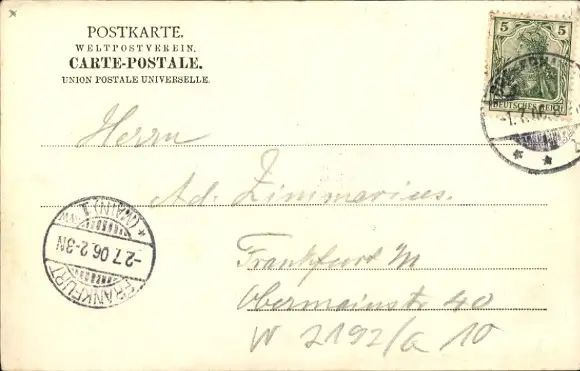 POSTKARTE.
WELTPOSTVEREIN.
CARTE-POSTALE.
UNION POSTALE UNIVERSELLE.
5 5
DEUTSCHES REICH
-1.7.06.
Herrn
Ad. Zimmerius.
Frankfurt M
Obermainstr 40
W 2192/a 10
FRANKFURT
-2.7.06.2-3N
(MAIN) 1